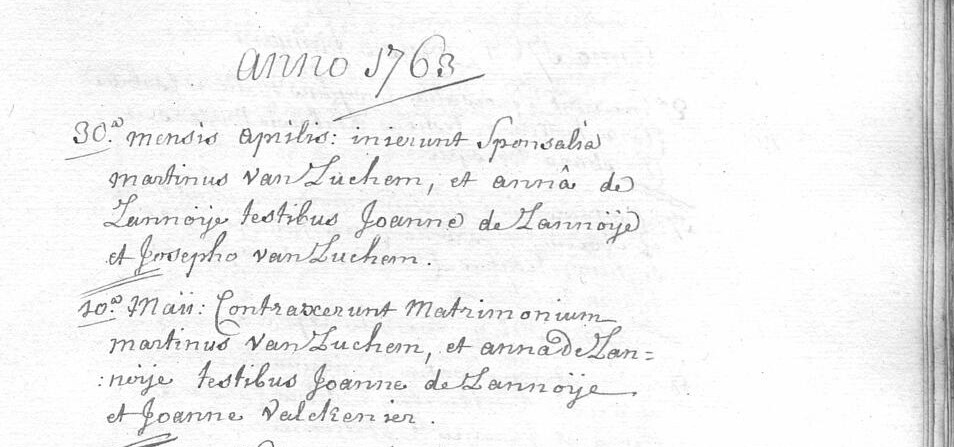 anno 1763
30.a mensis aprilis: inierunt Sponsalia
martinus van Luchem, et annâ de
Lannoÿe testibus Joanne de Lannoÿe
et Josepho van Luchem.
10.a Maii: Contraxerunt Matrimonium
martinus van Luchem, et anna de Lan=
:noÿe testibus Joanne de Lannoÿe
et Joanne Valckenier.